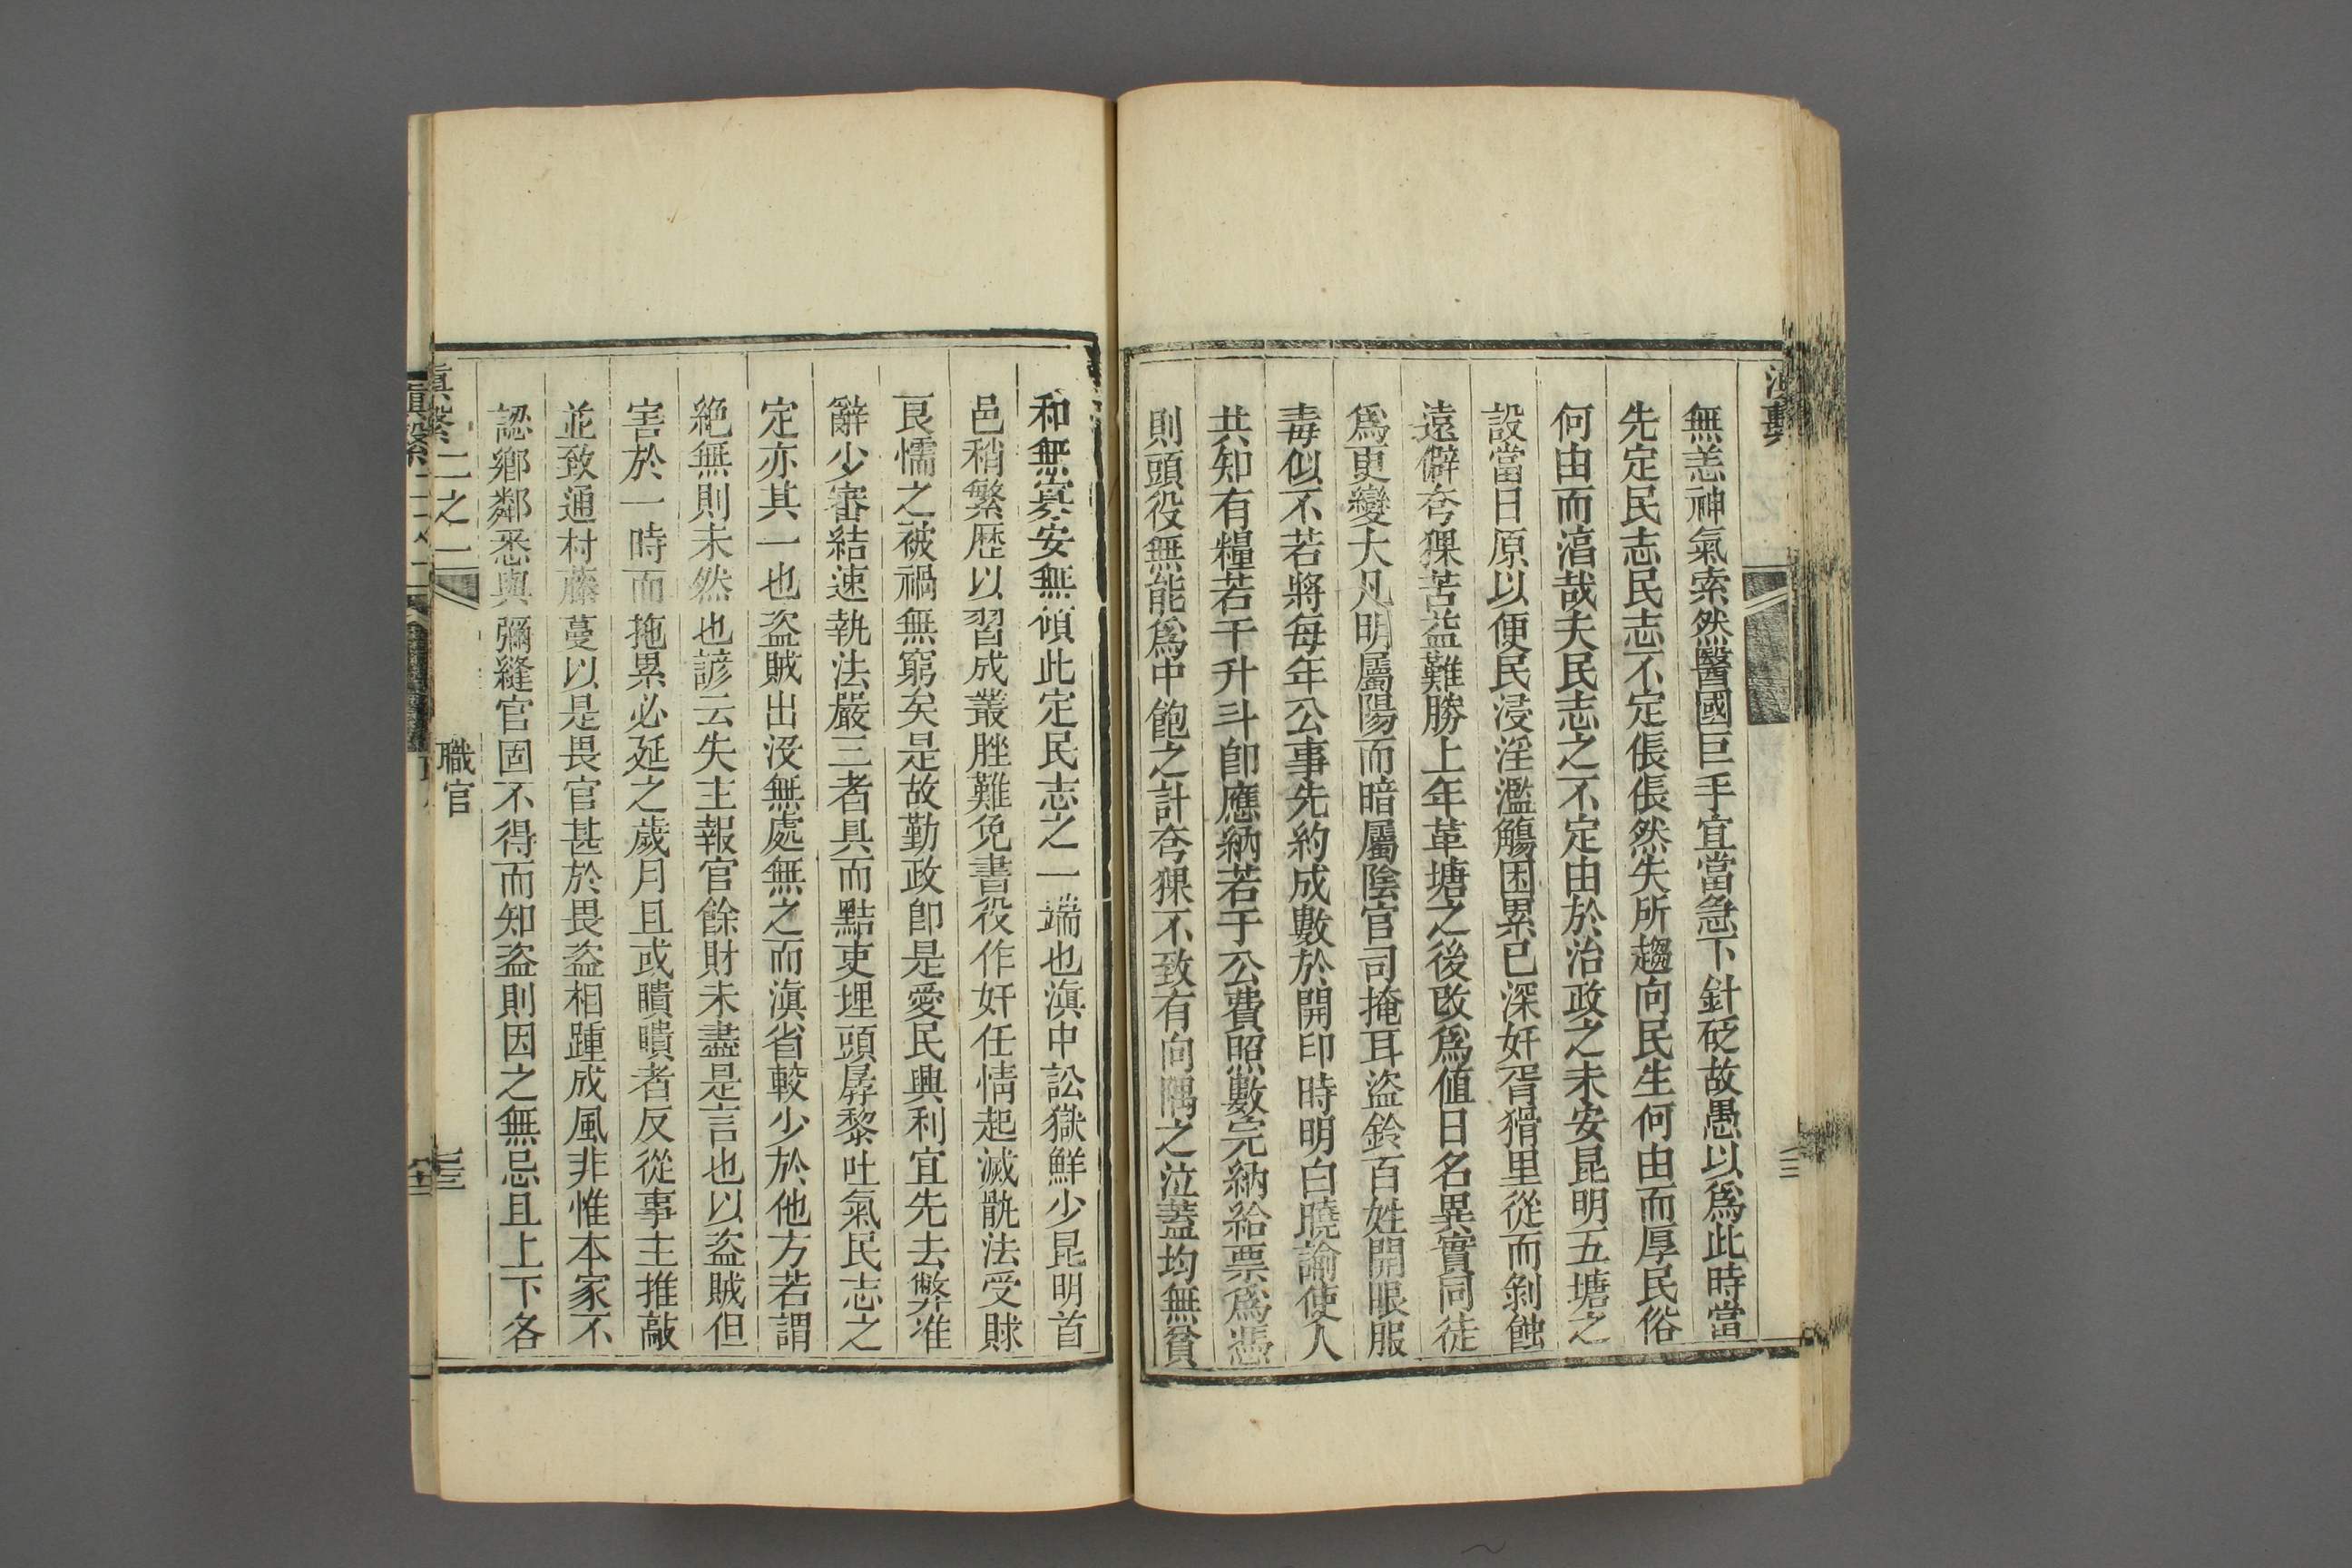 無恙神氣索然醫國巨手宜當急下針砭故愚以爲此時當
先定民志民志不定倀倀然失所趨向民生何由而厚民俗
何由而淆哉夫民志之不定由於治政之未安昆明五塘之
設當日原以便民浸淫濫觴困累已深奸胥猾里從而剝蝕
遠僻夸猓苦益難勝上年革塘之後改爲値日名異實同徒
爲更變大凡明屬陽而暗屬陰官司掩耳盜鈴百姓開眼服
毒似不若將每年公事先約成數於開印時明白曉諭使人
共知有糧若干升斗卽應納若于公費照數完納給票爲憑
則頭役無能爲中飽之計夸猓不致有向隅之泣蓋均無貧
和無寡安無傾此定民志之一端也滇中訟獄鮮少昆明首
邑稍繁歷以習成叢脞難免書役作奸任情起滅骫法受賕
良懦之被禍無窮矣是故勤政卽是愛民興利宜先去弊准
辭少審結速執法嚴三者具而黠吏埋頭孱黎吐氣民志之
定亦其一也盜賊出沒無處無之而滇省較少於他方若謂
絶無則未然也諺云失主報官餘財未盡是言也以盜賊但
害於一時而拖累必延之歲月且或瞶瞶者反從事主推敲
並致通村藤蔓以是畏官甚於畏盜相踵成風非惟本家不
認鄉鄰悉與彌縫官固不得而知盜則因之無忌且上下各
滇繫 二之一
職官
三三